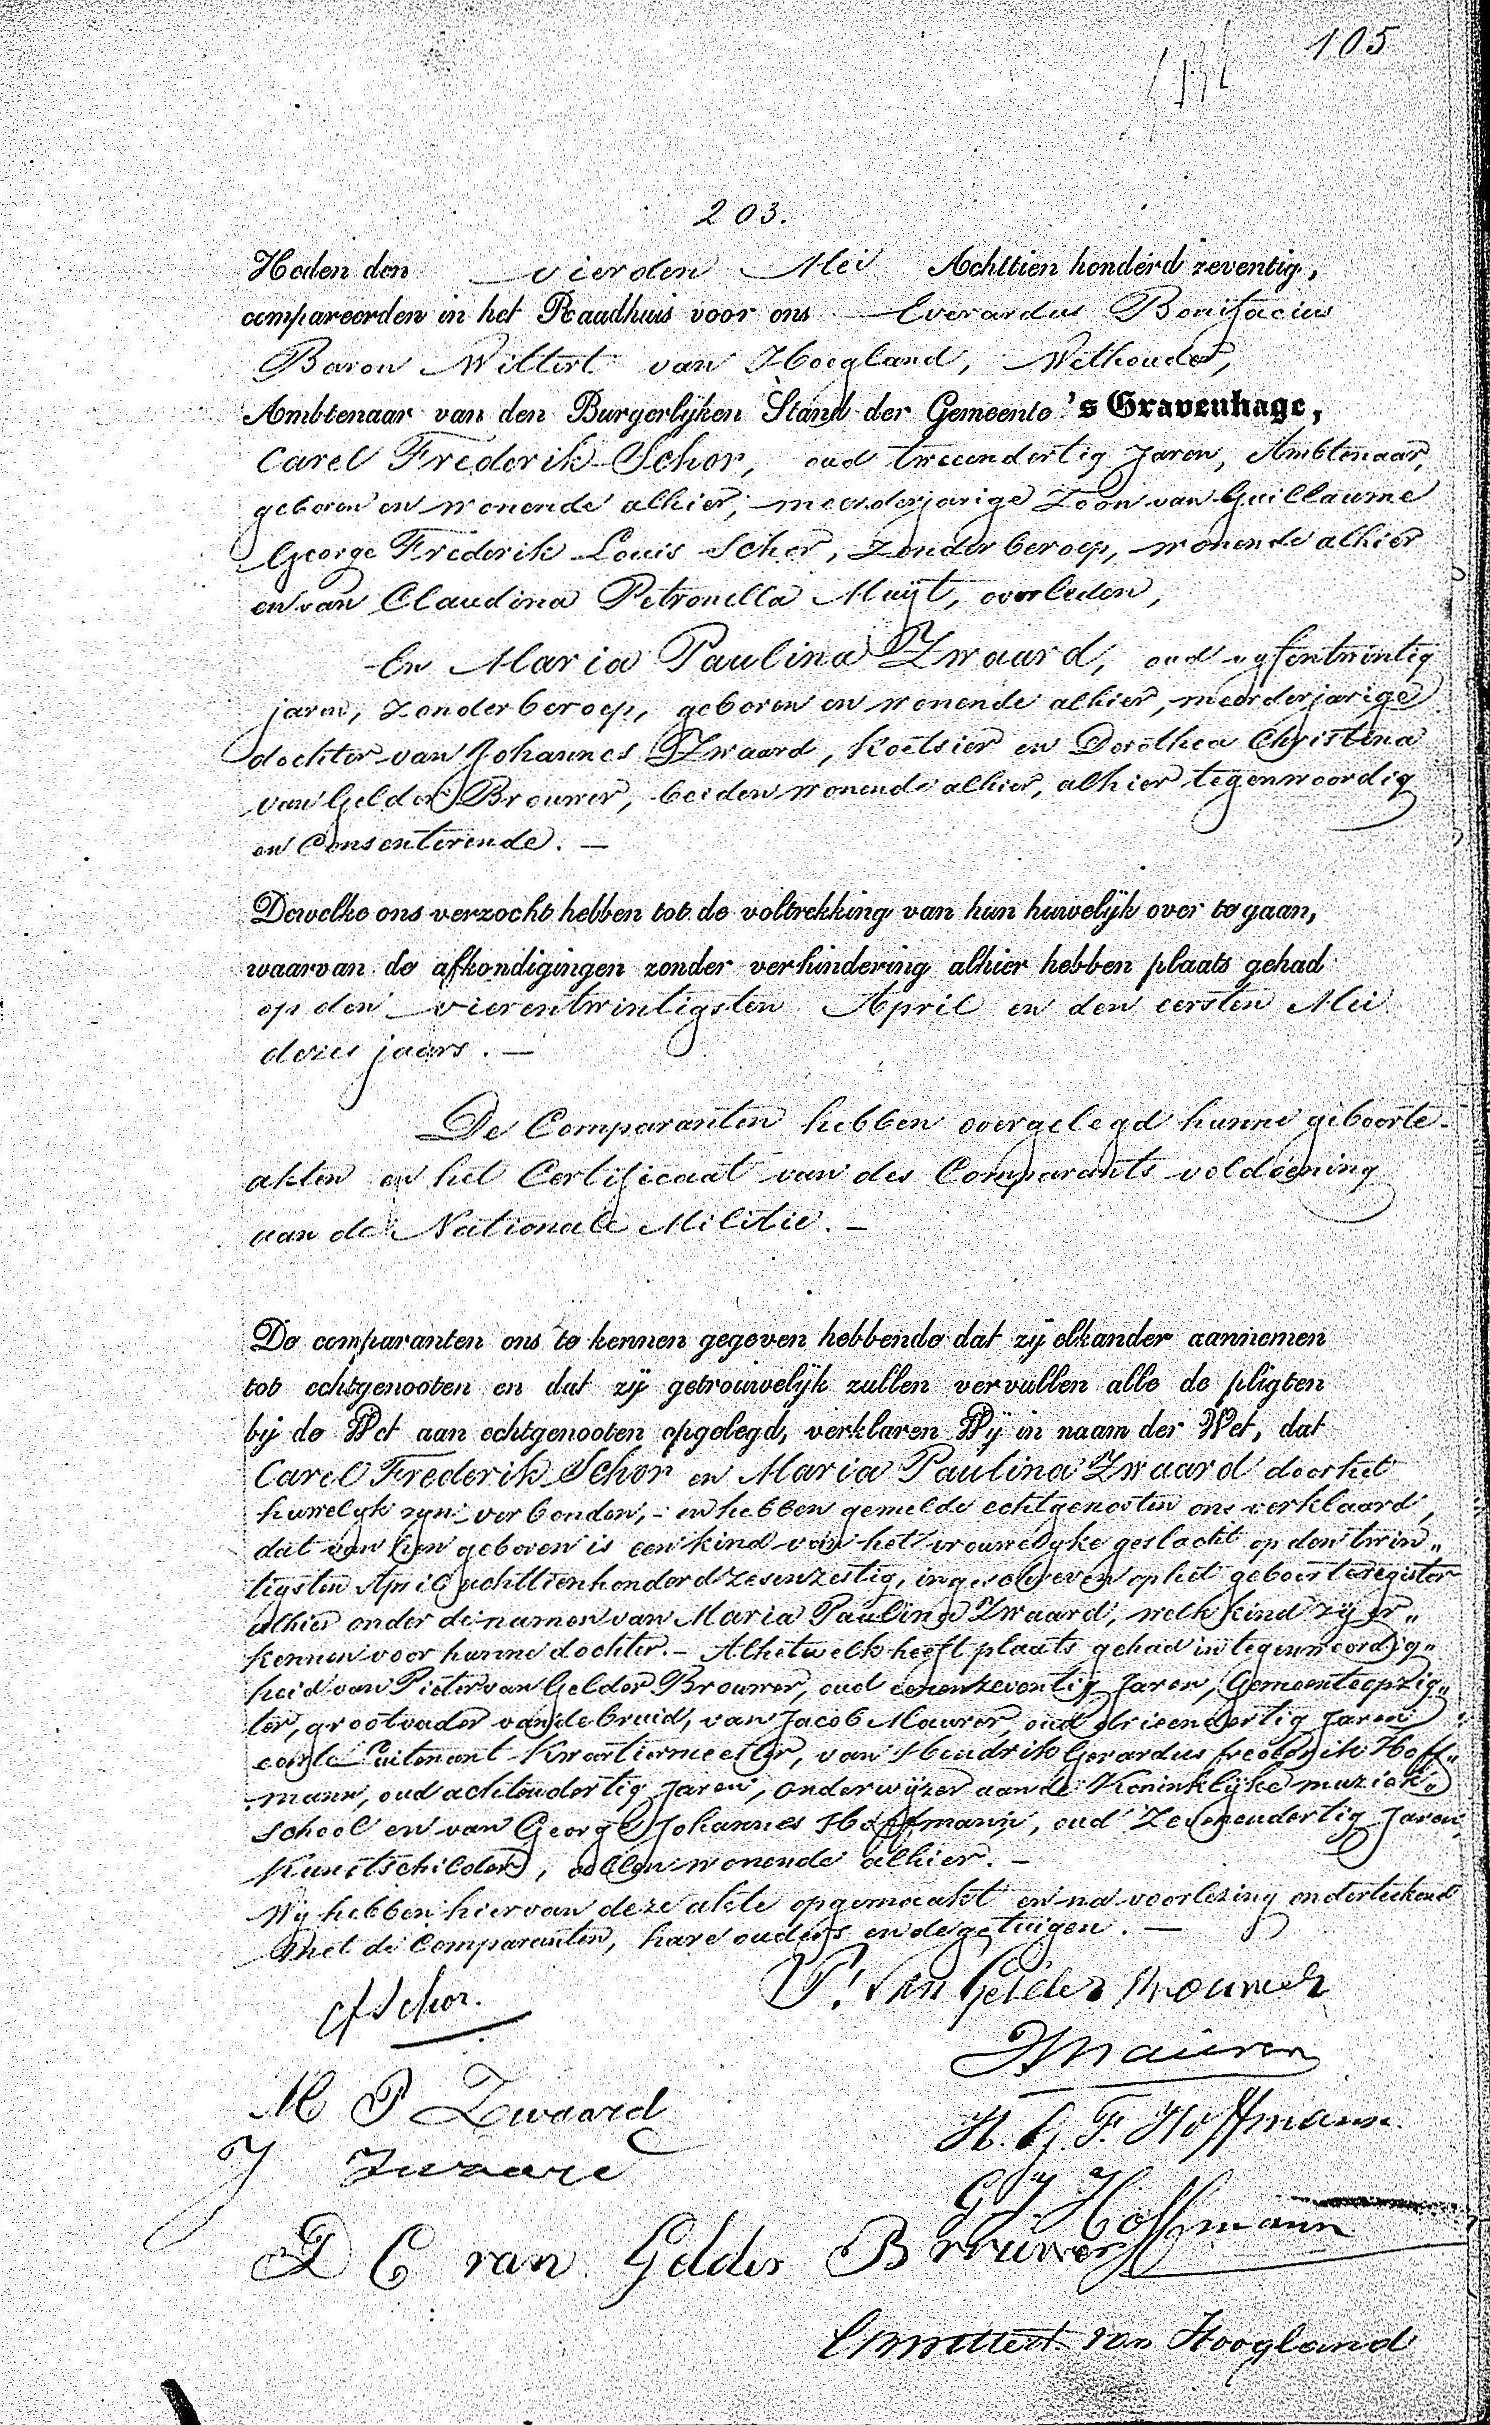 105
203.
Heden den vierden Mei Achttien honderd zeventig,
compareerden in het Raadhuis voor ons Everardus Bonifacius
Baron Wittert van Hoogland, Wethouder,
Ambtenaar van den Burgerlijken Stand der Gemeente 's Gravenhage,
Carel Frederik Schor, oud tweeendertig Jaren, Ambtenaar,
geboren en wonende alhier, meerderjarige Zoon van Guillaume
George Frederik Louis Schor, zonder beroep, wonende alhier
en van Claudina Petronella Muijt, overleden,
En Maria Paulina Zwaard, oud vyfentwintig
jaren, zonder beroep, geboren en wonende alhier, meerderjarige
dochter van Johannes Zwaard, Koetsier en Dorothea Christina
van Gelder Brouwer, beiden wonende alhier, alhier tegenwoordig
en Consenterende. —
Dewelke ons verzocht hebben tot de voltrekking van hun huwelijk over te gaan,
waarvan de afkondigingen zonder verhindering alhier hebben plaats gehad
op den vierentwintigsten April en den eersten Mei
dezes jaars. —
De Comparanten hebben overgelegd hunne geboorte-
akten en het Certificaat van des Comparants voldoening
aan de Nationale Militie. —
De comparanten ons te kennen gegeven hebbende dat zij elkander aannemen
tot echtgenooten en dat zij getrouwelijk zullen vervullen alle de pligten
bij de Wet aan echtgenooten opgelegd, verklaren Wij in naam der Wet, dat
Carel Frederik Schor en Maria Paulina Zwaard door het
huwelyk zyn verbonden, - en hebben gemelde echtgenooten ons verklaard,
dat van hen geboren is een kind van het vrouwelyke geslacht op den twin„
tigsten April achttienhonderd zesenzestig, ingeschreven op het geboorteregister
alhier onder de namen van Maria Paulina Zwaard, welk kind zy er„
kennen voor hunne dochter. - Alhetwelk heeft plaats gehad in tegenwoordig„
heid van Pieter van Gelder Brouwer, oud eenenzeventig Jaren, Gemeenteopzig„
ter, grootvader van de bruid, van Jacob Maurer, oud drieendertig Jaren
eerste Luitenant Kwartiermeester, van Hendrik Gerardus Frederik Hoff„
mann, oud achtendertig Jaren, Onderwijzer aan de Koninklijke muziek„
school en van George Johannes Hoffmann, oud Zevenendertig Jaren,
Kunstschilder, allen wonende alhier. —
Wy hebben hiervan deze akte opgemaakt en na voorlezing onderteekend
met de Comparanten, hare ouders en de getuigen. —
CfSchor.
P. Van Gelder Brouwer
JMaurer
M P Zwaard
H. G. F. Hoffmann.
J Zwaard
G J. Hoffmann
D C van Gelder Brouwer
EBWittert van Hoogland